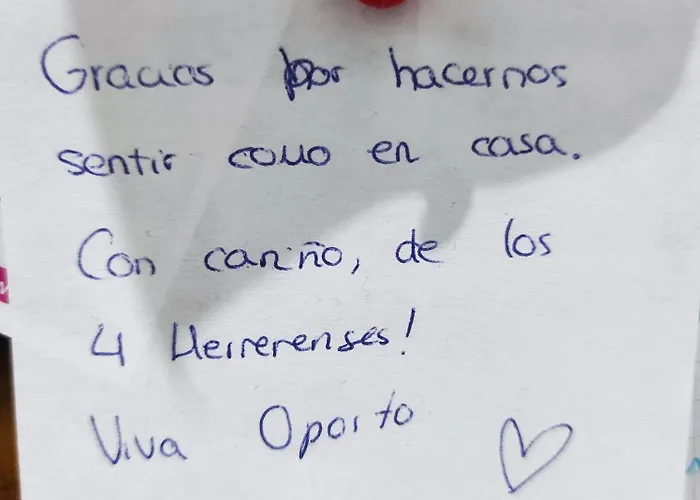 Gracias por hacernos
sentir como en casa.
Con cariño, de los
4 Herrerenses!
Viva Oporto